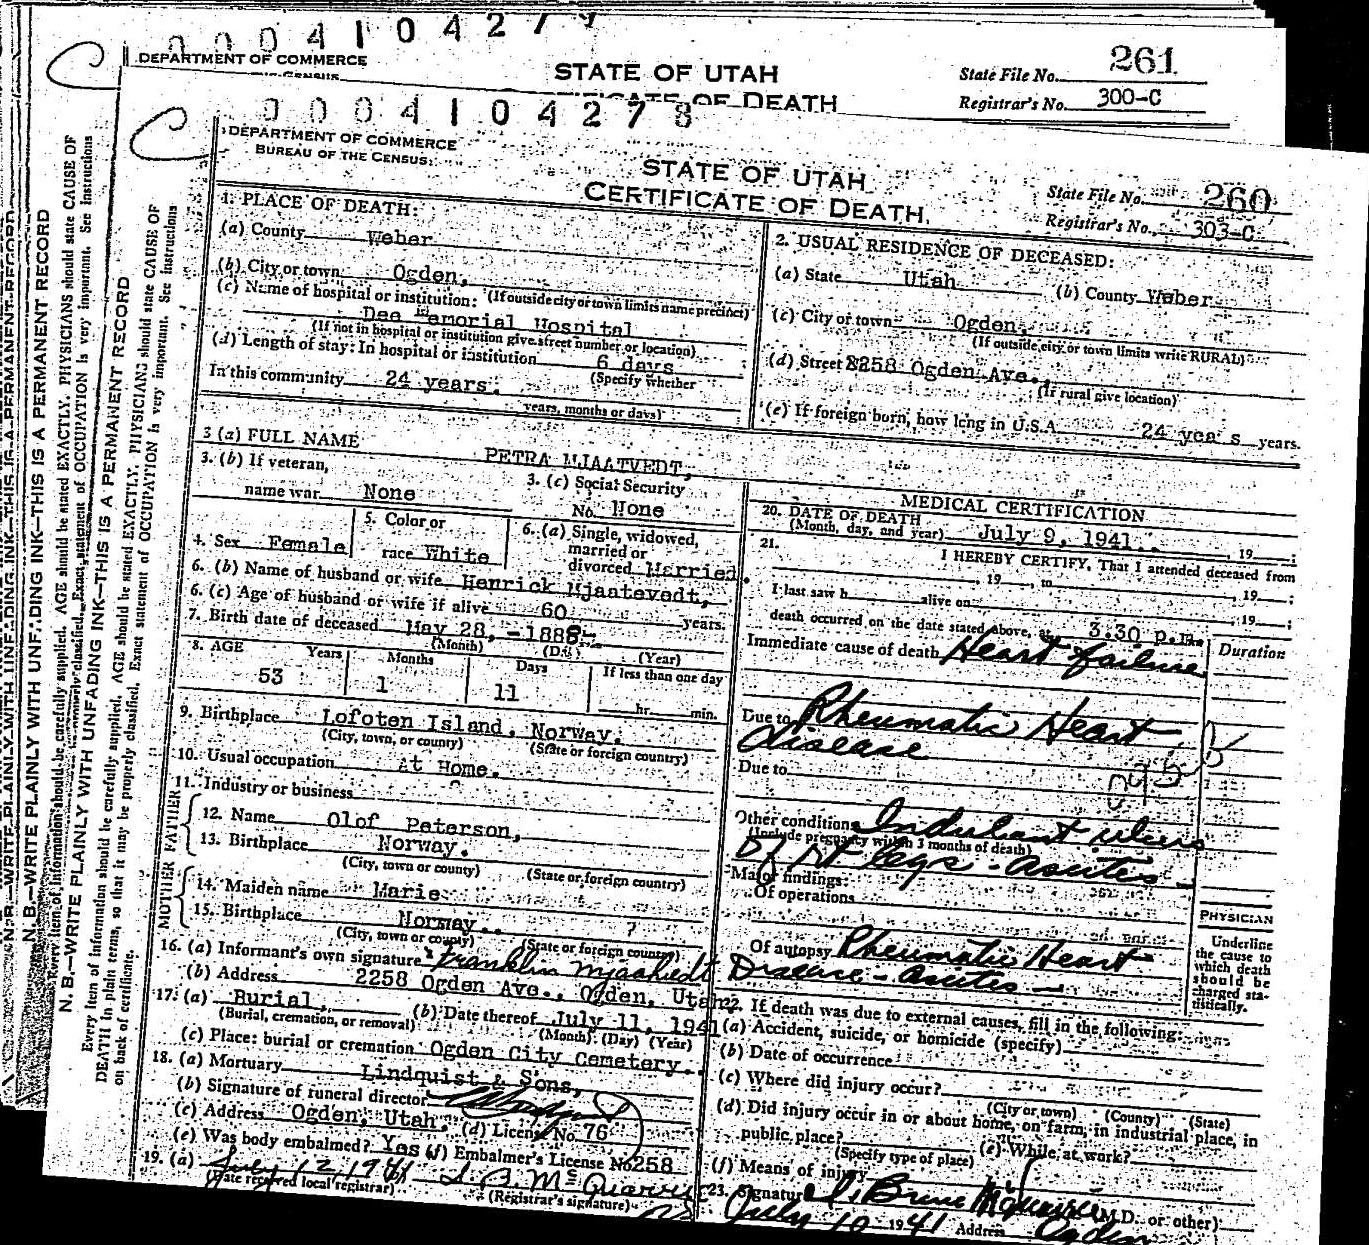 000410427
DEPARTMENT OF COMMERCE
STATE OF UTAH
OF DEATH
State File No. 261
Registrar's No. 300-C
0004104278
DEPARTMENT OF COMMERCE
BUREAU OF THE CENSUS
STATE OF UTAH
CERTIFICATE OF DEATH
State File No. 260
Registrar's No. 303-C
1. PLACE OF DEATH:
(a) County Weber
(b) City or town Ogden,
(If outside city or town limits name precinct)
(c) Name of hospital or institution:
Dee Memorial Hospital
(If not in hospital or institution give street number or location)
(d) Length of stay: In hospital or institution 6 days
(Specify whether
In this community 24 years.
years, months or days)
2. USUAL RESIDENCE OF DECEASED:
(a) State Utah (b) County Weber
(c) City or town Ogden
(If outside city or town limits write RURAL)
(d) Street 2258 Ogden Ave.
(If rural give location)
(e) If foreign born, how long in U.S.A. 24 yea s years.
3 (a) FULL NAME PETRA MJAATVEDT,
3. (b) If veteran,
name war None
3. (c) Social Security
No. None
4. Sex Female
5. Color or
race White
6. (a) Single, widowed,
married or
divorced Married.
6. (b) Name of husband or wife Henrick Mjaatevedt,
6. (c) Age of husband or wife if alive 60 years.
7. Birth date of deceased May 28, -1888-
(Month) (Day) (Year)
8. AGE Years Months Days If less than one day
53 1 11 hr. min.
9. Birthplace Lofoten Island, Norway.
(City, town, or county) (State or foreign country)
10. Usual occupation At Home.
11. Industry or business
FATHER
12. Name Olof Peterson,
13. Birthplace Norway.
(City, town or county) (State or foreign country)
MOTHER
14. Maiden name Marie
15. Birthplace Norway.. ?
(City, town or county) (State or foreign country)
16. (a) Informant's own signature Franklin Mjaatvedt
(b) Address 2258 Ogden Ave., Ogden, Utah.
17. (a) Burial, (b) Date thereof July 11, 1941
(Burial, cremation, or removal) (Month) (Day) (Year)
(c) Place: burial or cremation Ogden City Cemetery..
18. (a) Mortuary Lindquist & Sons,
(b) Signature of funeral director
(c) Address Ogden, Utah, (d) License No. 76
(e) Was body embalmed? Yes (f) Embalmer's License No 258
19. (a) July 12 1941
(Date received local registrar) (Registrar's signature)
MEDICAL CERTIFICATION
20. DATE OF DEATH
(Month, day, and year) July 9, 1941. , 19 ;
21. I HEREBY CERTIFY, That I attended deceased from
, 19 , to , 19 ;
I last saw h alive on , 19 ;
death occurred on the date stated above, at 3.30 p.m.
Immediate cause of death Heart failure
Duration
Due to Rheumatic Heart
disease
095 b
Due to
Other conditions Indulant ulcers
(Include pregnancy within 3 months of death)
of Rt legs - Ascites -
Major findings:
Of operations
Of autopsy Rheumatic Heart
Disease - Ascites -
PHYSICIAN
Underline
the cause to
which death
should be
charged sta-
tistically.
22. If death was due to external causes, fill in the following:
(a) Accident, suicide, or homicide (specify)
(b) Date of occurrence
(c) Where did injury occur?
(City or town) (County) (State)
(d) Did injury occur in or about home, on farm, in industrial place, in
public place?
(Specify type of place) (e) While at work?
(f) Means of injury
23. Signature M.D. or other)
July 10 1941 Address Ogden
N. B.—WRITE PLAINLY WITH UNFADING INK—THIS IS A PERMANENT RECORD
Every item of information should be carefully supplied. AGE should be stated EXACTLY. PHYSICIANS should state CAUSE OF
DEATH in plain terms, so that it may be properly classified. Exact statement of OCCUPATION is very important. See instructions
on back of certificate.
N. B.—WRITE PLAINLY WITH UNFADING INK—THIS IS A PERMANENT RECORD